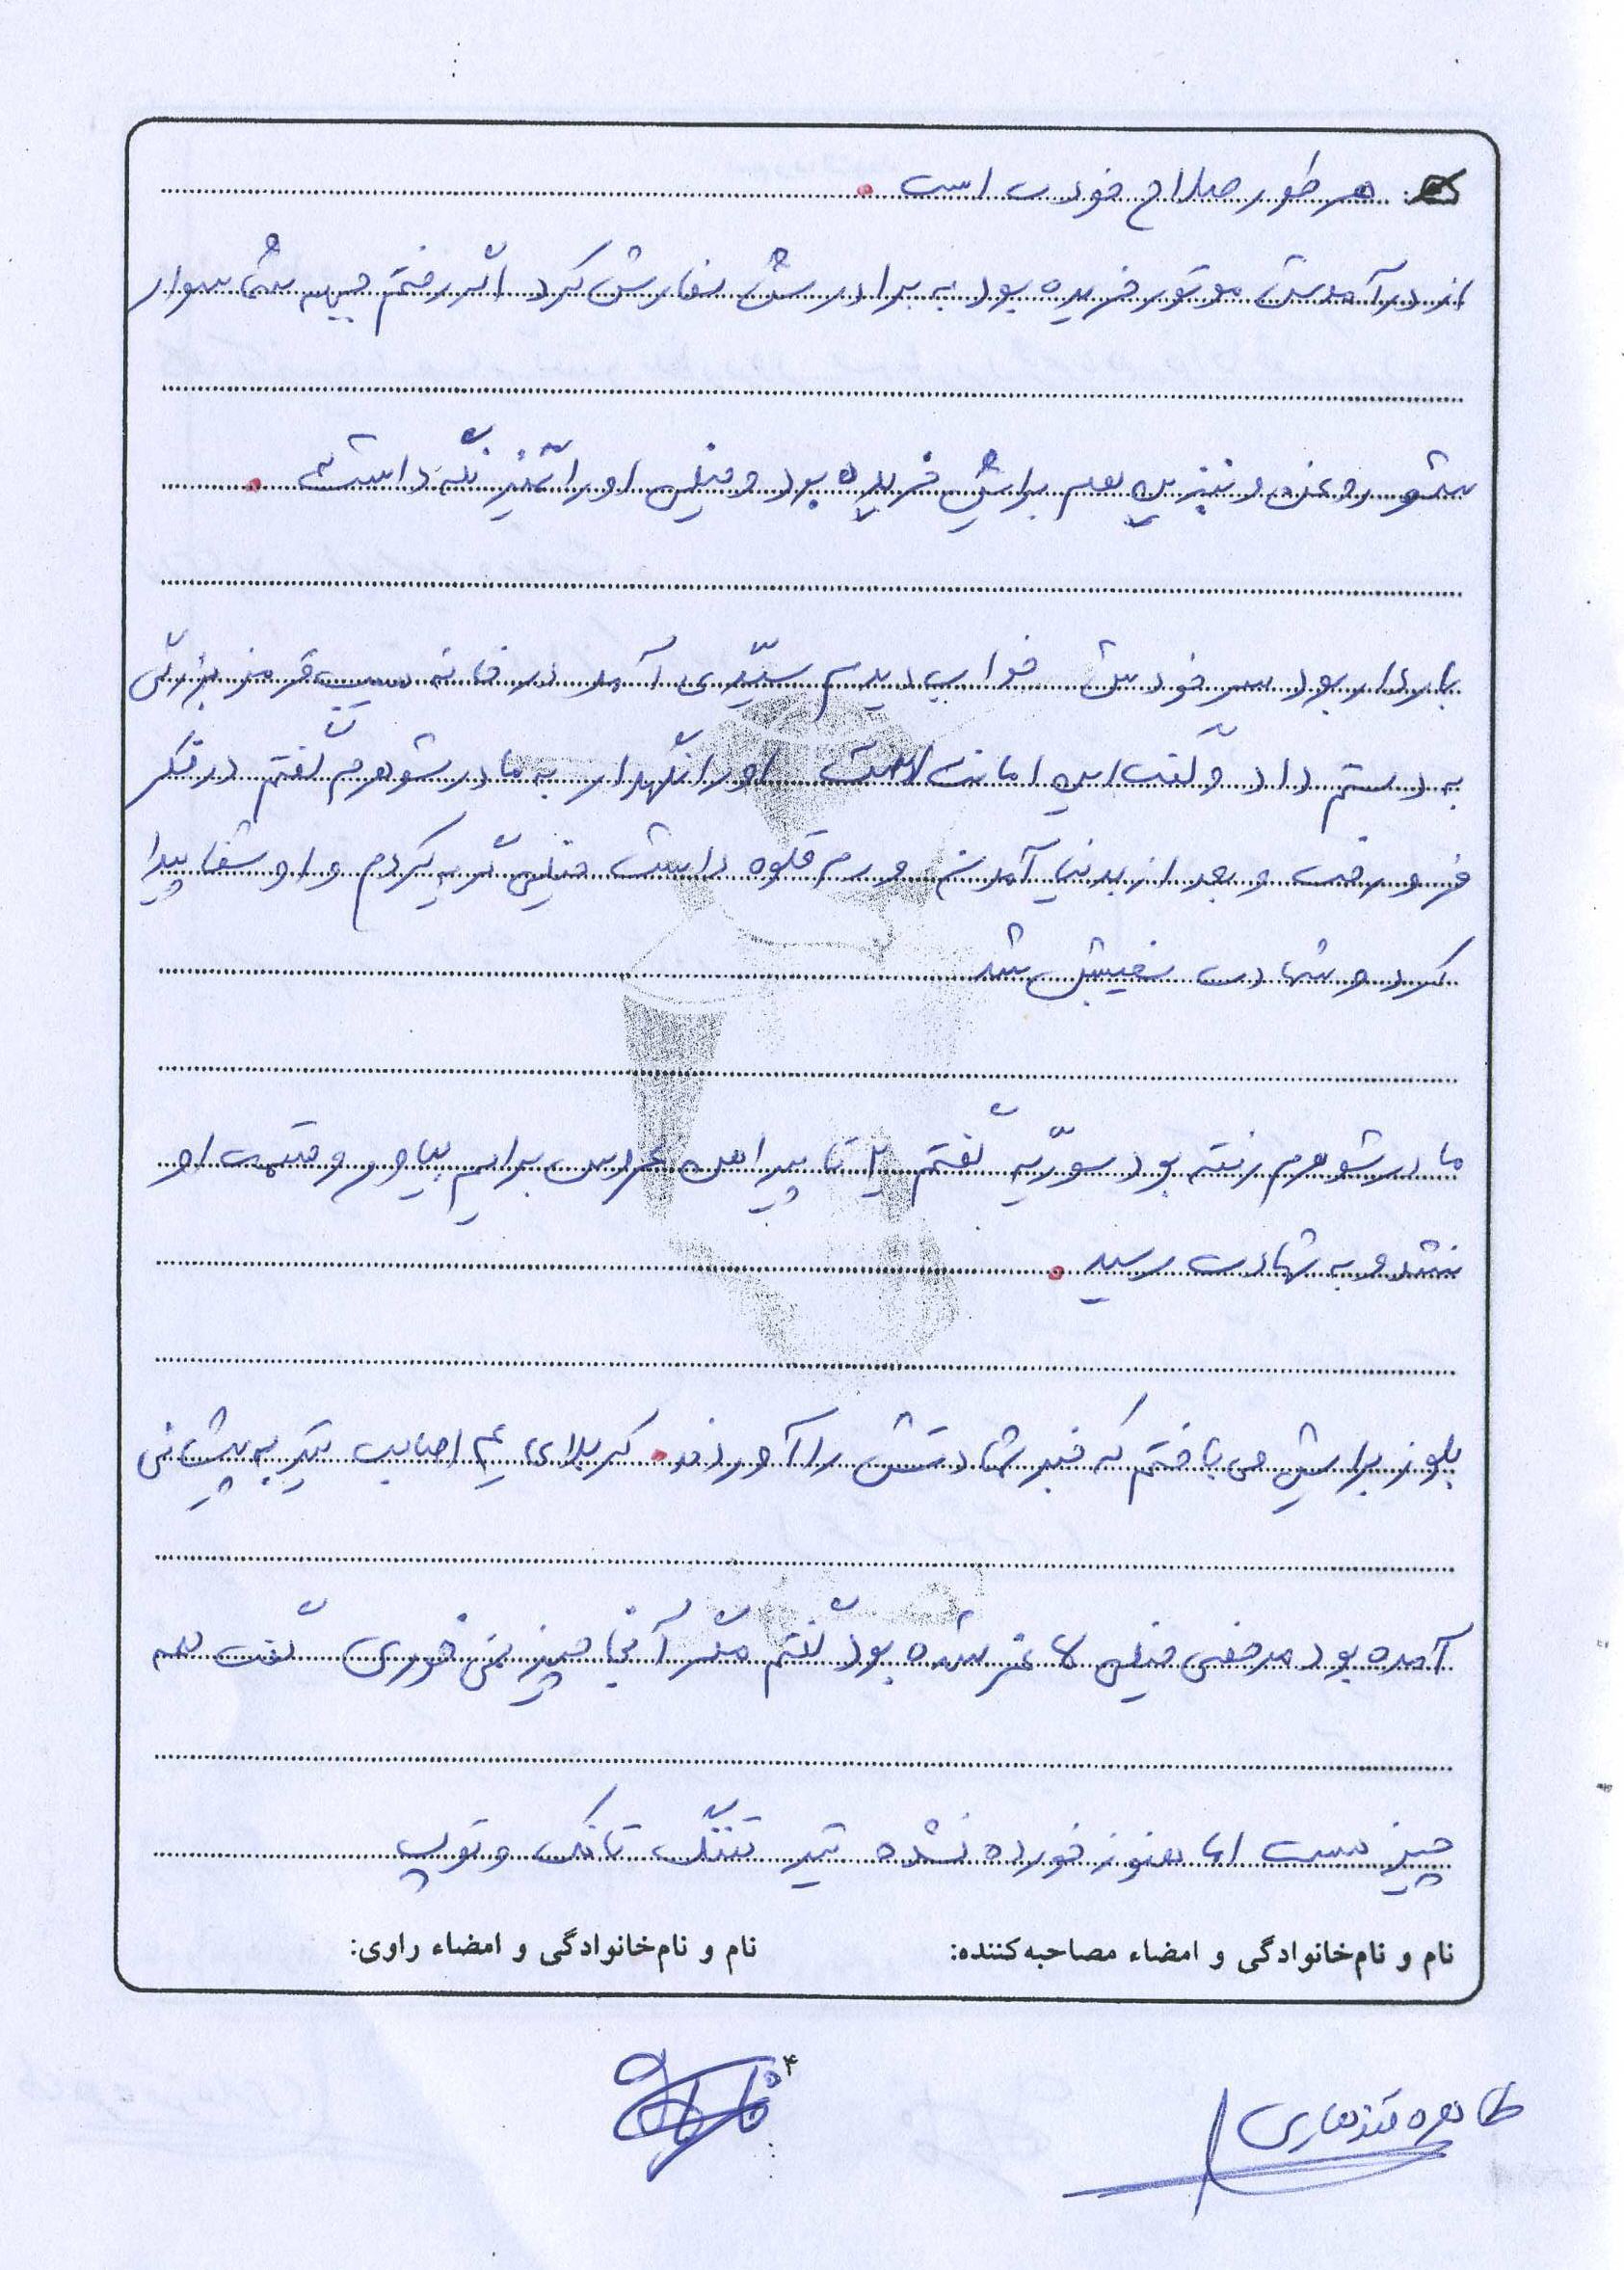 هر طور صلاح خودت است.
از درآمدش موتور خریده بود به برادرش سفارش کرد اگر رفتم جبهه شما سوار
شو روغن و بنزین هم برایش خریده بود و خیلی او را تمیز نگه داشت.
باردار بود سر خودش خواب دیدم سیّدی آمد در خانه سیب قرمز بزرگی
به دستم داد و گفت این امانت است او را نگهدار به مادر شوهرم گفتم در فکر
فرو رفت و بعد از بدنیا آمدن ورم قلوه داشت خیلی گریه کردم و او شفا پیدا
کرد و شهادت نصیبش شد
مادر شوهرم رفته بود سوریّه گفتم یک تا پیراهن عروس برایم بیاور و قسمت او
نشد و به شهادت رسید.
بلوز برایش می بافتم که خبر شهادتش را آوردند. کربلای ۴ اصابت تیر به پیشانی
آمده بود مرخصی خیلی لاغر شده بود گفتم مگر آنجا چیز نمی خوری گفت همه
چیز هست اما هنوز خورده نشده تیر تفنگ تانک و توپ
نام و نام‌خانوادگی و امضاء مصاحبه‌کننده: نام و نام‌خانوادگی و امضاء راوی:
۴
طاهره قندهاری